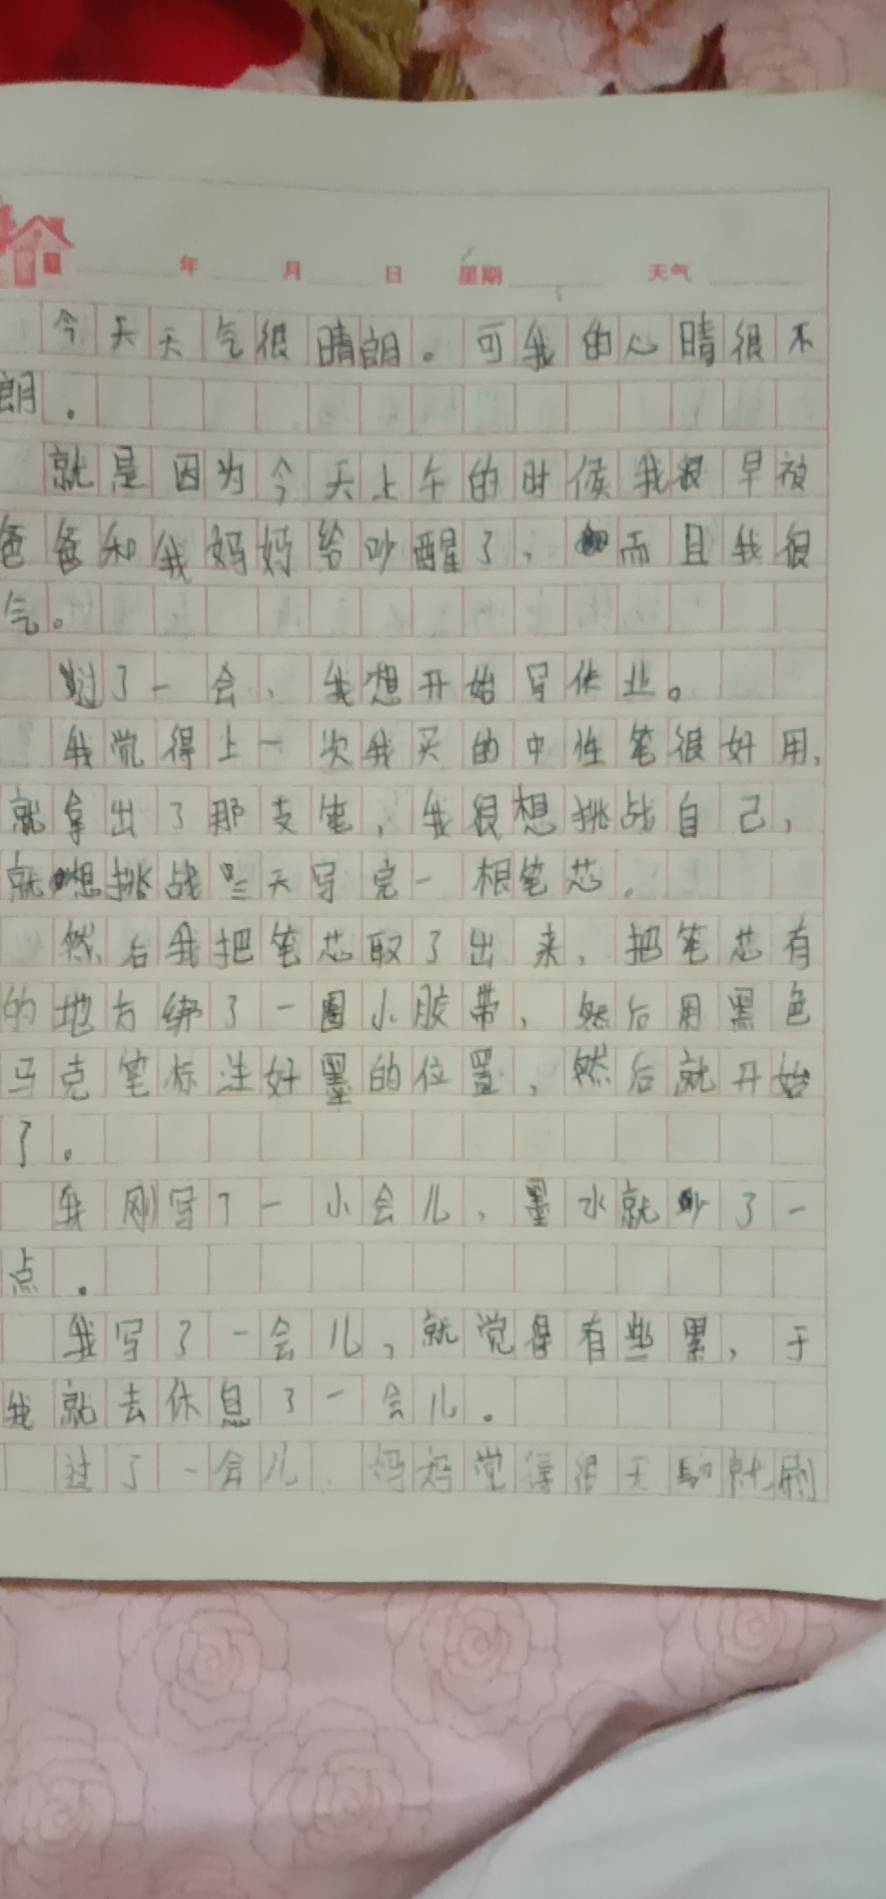 年 月 日 星期 天气
今天天气很晴朗。可我的心晴很不
朗。
就是因为今天上午的时候我很早被
爸爸和我妈妈给吵醒了,而且我很
气。
过了一会、我想开始写作业。
我觉得上一次我买的中性笔很好用,
就拿出了那支笔,我很想挑战自己,
就想挑战三天写完一根笔芯。
然后我把笔芯取了出来,把笔芯有
的地方绑了一圈小胶带,然后用黑色
马克笔标注好墨的位置,然后就开始
了。
我刚写了一小会儿,墨水就少了一
点。
我写了一会儿,就觉得有些累,于
我就去休息了一会儿。
过了一会儿、妈妈觉得很无聊就刷